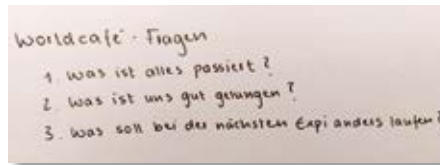 Worldcafé - Fragen
1. was ist alles passiert?
2. was ist uns gut gelungen?
3. was soll bei der nächsten Expi anders laufen?